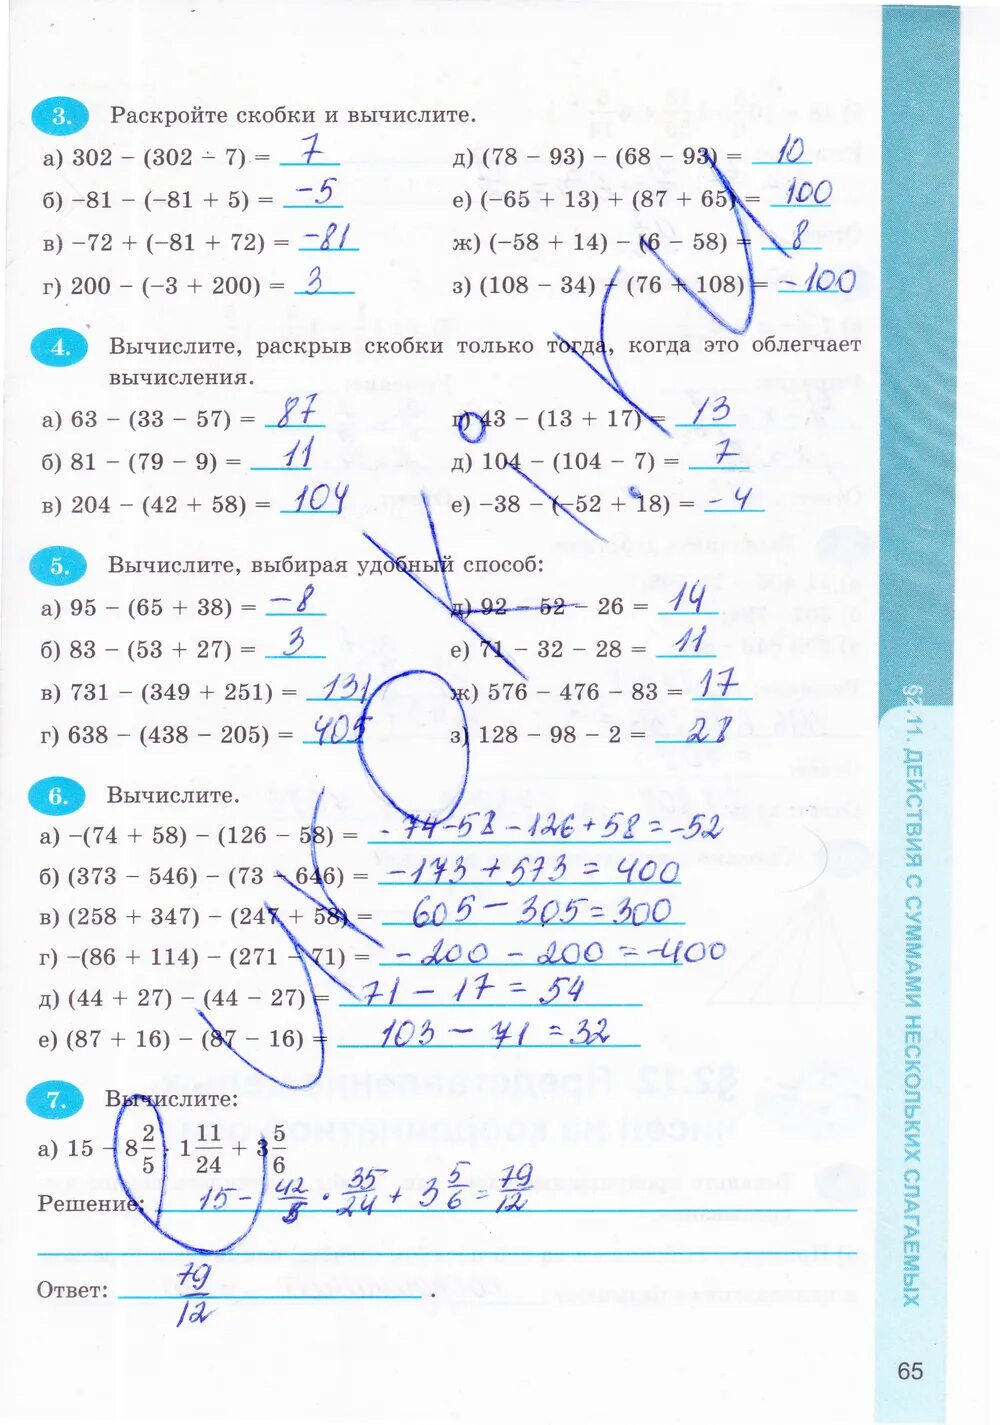 3. Раскройте скобки и вычислите.
а) 302 − (302 − 7) = 7
б) −81 − (−81 + 5) = −5
в) −72 + (−81 + 72) = −81
г) 200 − (−3 + 200) = 3
д) (78 − 93) − (68 − 93) = 10
е) (−65 + 13) + (87 + 65) = 100
ж) (−58 + 14) − (6 − 58) = 8
з) (108 − 34) − (76 + 108) = −100
4. Вычислите, раскрыв скобки только тогда, когда это облегчает
вычисления.
а) 63 − (33 − 57) = 87
б) 81 − (79 − 9) = 11
в) 204 − (42 + 58) = 104
г) 43 − (13 + 17) = 13
д) 104 − (104 − 7) = 7
е) −38 − (−52 + 18) = −4
5. Вычислите, выбирая удобный способ:
а) 95 − (65 + 38) = −8
б) 83 − (53 + 27) = 3
в) 731 − (349 + 251) = 131
г) 638 − (438 − 205) = 405
д) 92 − 52 − 26 = 14
е) 71 − 32 − 28 = 11
ж) 576 − 476 − 83 = 17
з) 128 − 98 − 2 = 28
6. Вычислите.
а) −(74 + 58) − (126 − 58) = −74−58−126+58=−52
б) (373 − 546) − (73 − 646) = −173+573=400
в) (258 + 347) − (247 + 58) = 605−305=300
г) −(86 + 114) − (271 − 71) = −200−200=−400
д) (44 + 27) − (44 − 27) = 71−17=54
е) (87 + 16) − (87 − 16) = 103−71=32
7. Вычислите:
а) 15 − 8 2/5 · 1 11/24 + 3 5/6
Решение: 15 − 42/5 · 35/24 + 3 5/6 = 79/12
Ответ: 79/12
§2.11. ДЕЙСТВИЯ С СУММАМИ НЕСКОЛЬКИХ СЛАГАЕМЫХ
65